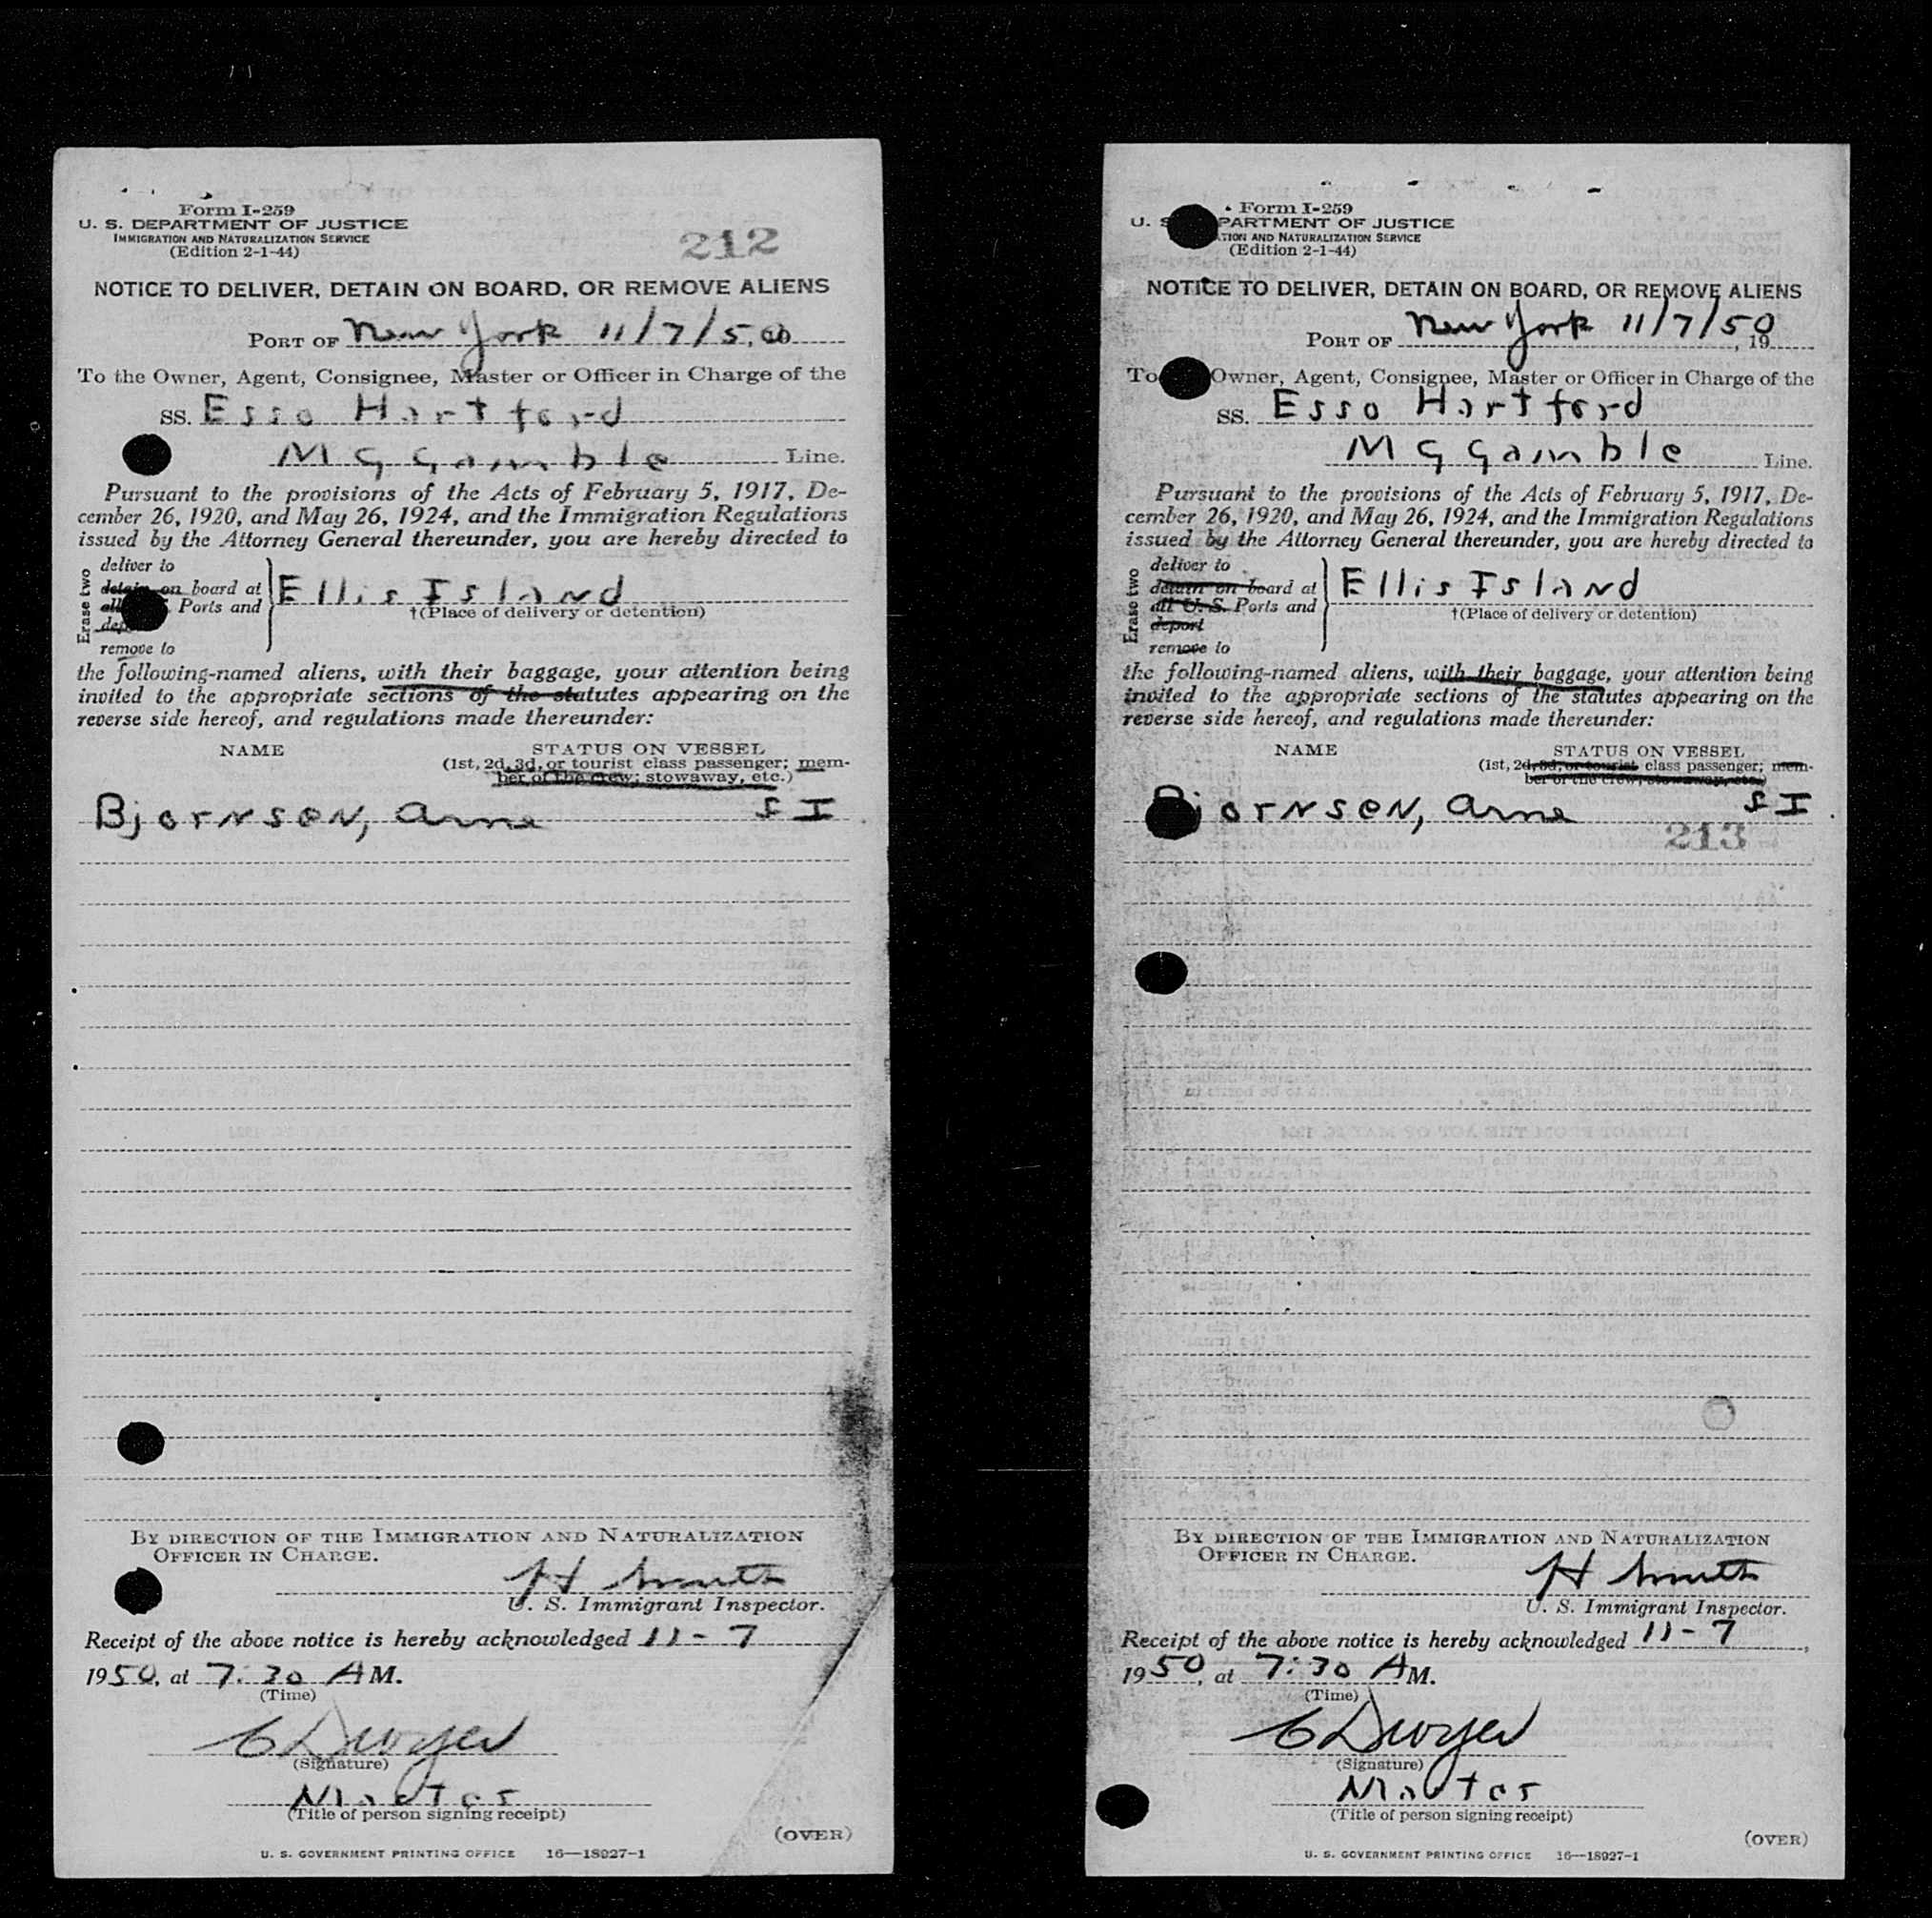 Form I-259
U. S. DEPARTMENT OF JUSTICE
IMMIGRATION AND NATURALIZATION SERVICE
(Edition 2-1-44)
212
NOTICE TO DELIVER, DETAIN ON BOARD, OR REMOVE ALIENS
PORT OF New York 11/7/50
To the Owner, Agent, Consignee, Master or Officer in Charge of the
SS. Esso Hartford
M G Gamble Line.
Pursuant to the provisions of the Acts of February 5, 1917, De-
cember 26, 1920, and May 26, 1924, and the Immigration Regulations
issued by the Attorney General thereunder, you are hereby directed to
Erase two
deliver to
detain on board at
all Ports and
remove to
Ellis Island
†(Place of delivery or detention)
the following-named aliens, with their baggage, your attention being
invited to the appropriate sections of the statutes appearing on the
reverse side hereof, and regulations made thereunder:
NAME STATUS ON VESSEL
(1st, 2d, 3d, or tourist class passenger; mem-
ber of the crew; stowaway, etc.)
Bjornsen, Arne S I
BY DIRECTION OF THE IMMIGRATION AND NATURALIZATION
OFFICER IN CHARGE.
H Smith
U. S. Immigrant Inspector.
Receipt of the above notice is hereby acknowledged 11-7
1950, at 7:30 AM.
(Time)
C Dwyer
(Signature)
Master
(Title of person signing receipt)
(OVER)
U. S. GOVERNMENT PRINTING OFFICE 16—18927-1
Form I-259
U. S. PARTMENT OF JUSTICE
TION AND NATURALIZATION SERVICE
(Edition 2-1-44)
NOTICE TO DELIVER, DETAIN ON BOARD, OR REMOVE ALIENS
PORT OF New York 11/7/50, 19
To Owner, Agent, Consignee, Master or Officer in Charge of the
SS. Esso Hartford
M G Gamble Line.
Pursuant to the provisions of the Acts of February 5, 1917, De-
cember 26, 1920, and May 26, 1924, and the Immigration Regulations
issued by the Attorney General thereunder, you are hereby directed to
Erase two
deliver to
detain on board at
all U. S. Ports and
deport
remove to
Ellis Island
†(Place of delivery or detention)
the following-named aliens, with their baggage, your attention being
invited to the appropriate sections of the statutes appearing on the
reverse side hereof, and regulations made thereunder:
NAME STATUS ON VESSEL
(1st, 2d, 3d, or tourist class passenger; mem-
ber of the crew; stowaway, etc.)
Bjornsen, Arne S I
213
BY DIRECTION OF THE IMMIGRATION AND NATURALIZATION
OFFICER IN CHARGE.
H Smith
U. S. Immigrant Inspector.
Receipt of the above notice is hereby acknowledged 11-7,
1950, at 7:30 AM.
(Time)
C Dwyer
(Signature)
Master
(Title of person signing receipt)
(OVER)
U. S. GOVERNMENT PRINTING OFFICE 16—18927-1